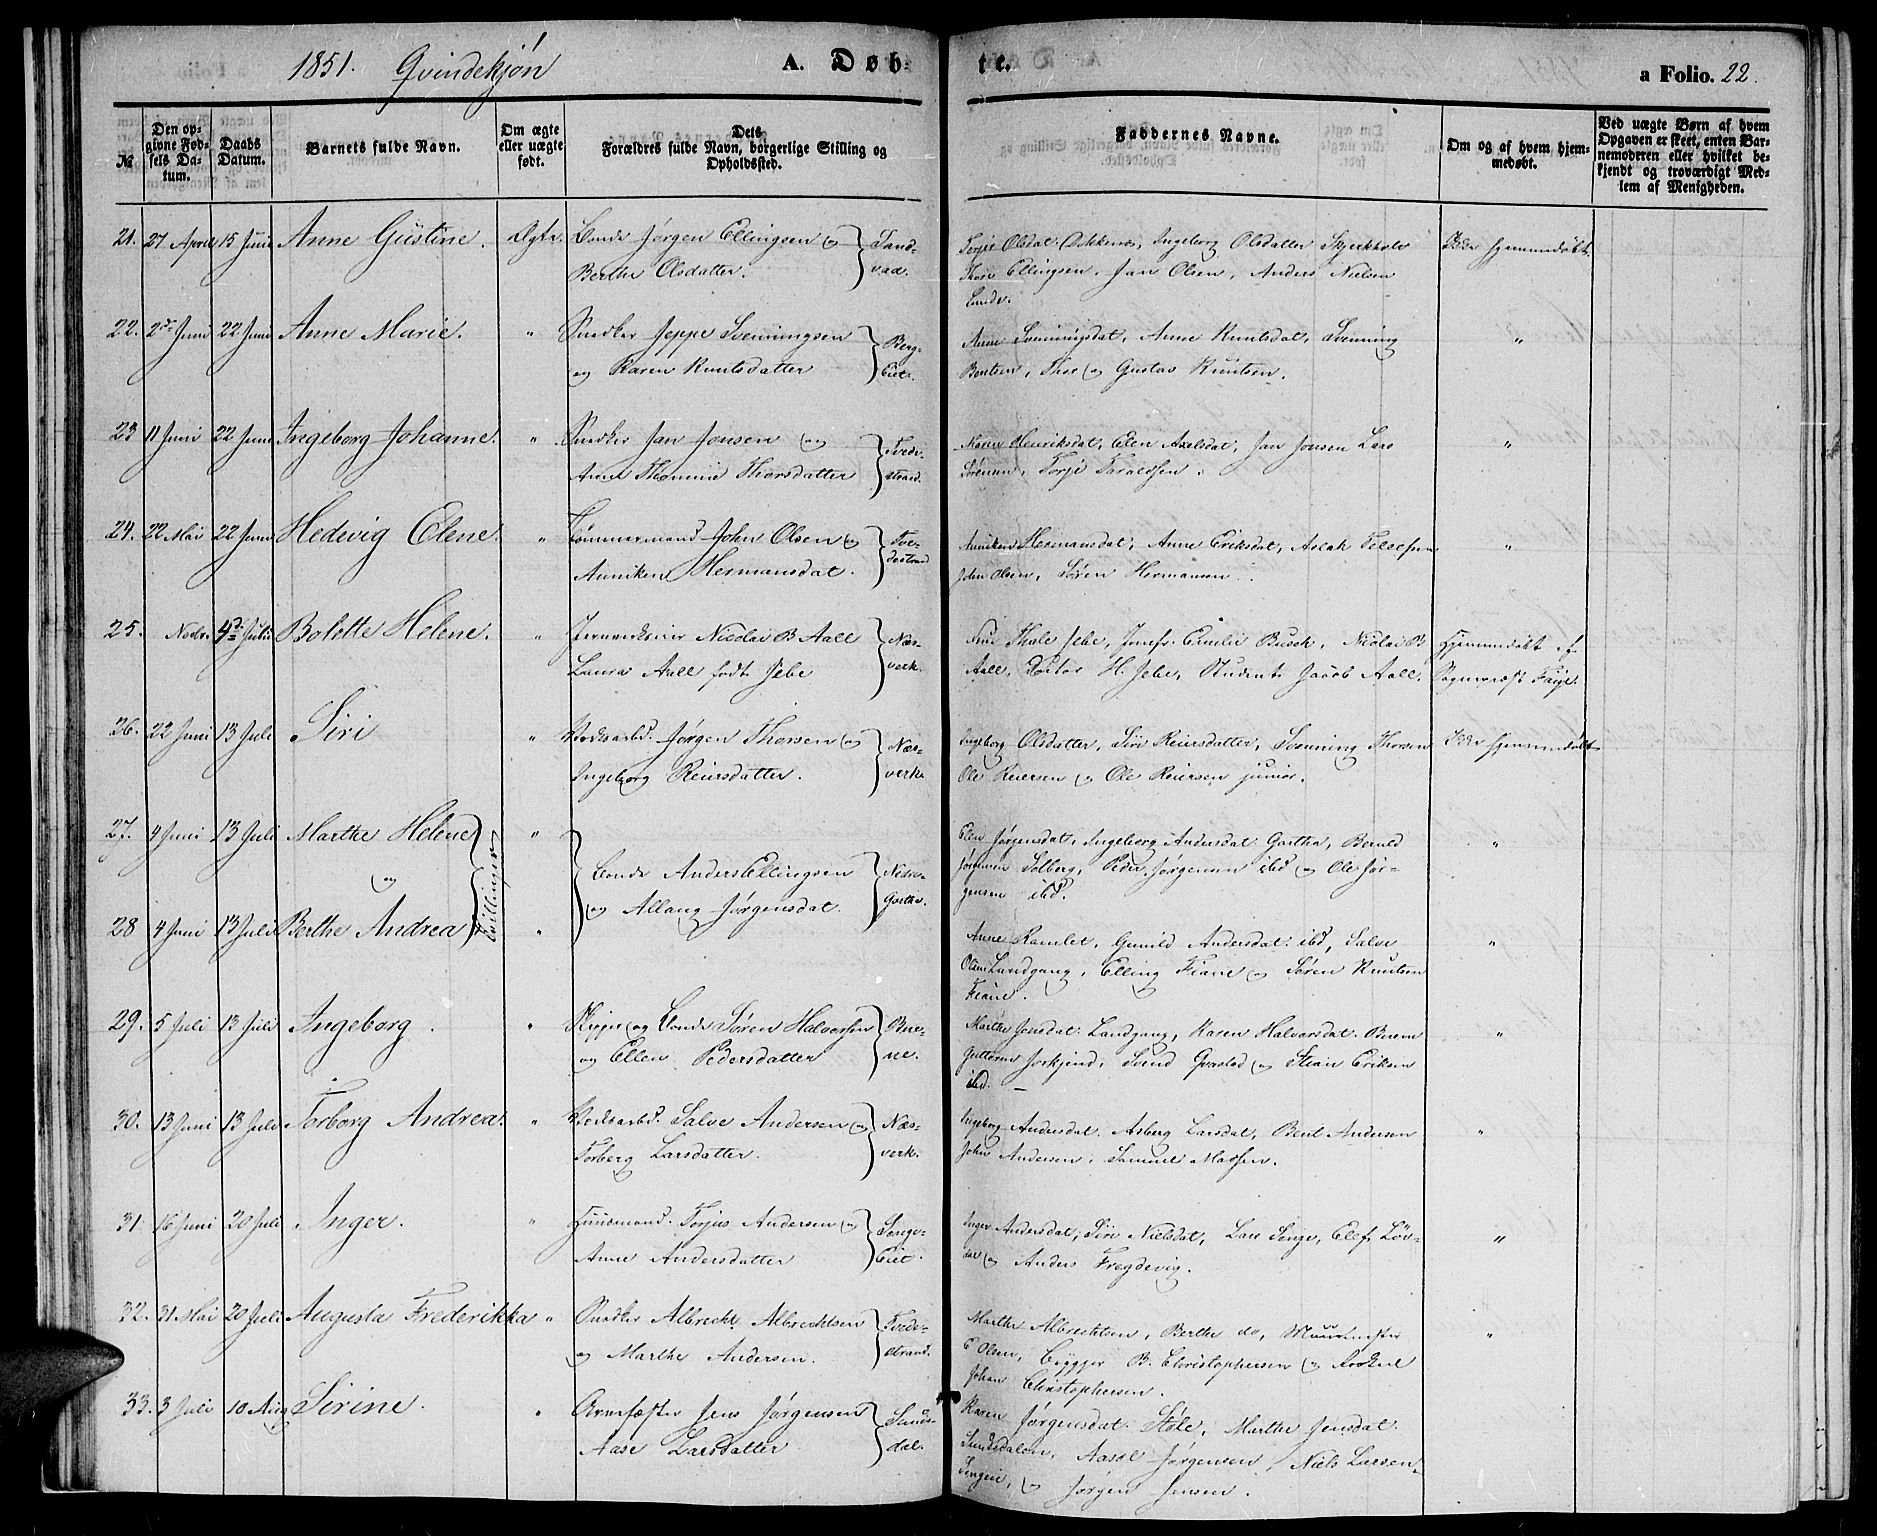 1851. Qvindekjøn
A. Døb-
te.
a Folio. 22.
№
Den op-
givne Fød-
sels Da-
tum.
Daabs
Datum.
Barnets fulde Navn.
Om ægte
eller uægte
født.
Dets
Forældres fulde Navn, borgerlige Stilling og
Opholdssted.
Faddernes Navne.
Om og af hvem hjem-
medøbt.
Ved uægte Børn af hvem
Opgaven er skeet, enten Bar-
nemoderen eller hvilket be-
kjendt og troværdigt Med-
lem af Menigheden.
21. 27 April 15 Juni Anne Gustine. Ægte. Bonde Jørgen Ellingsen og
Berthe Olsdatter. Sand-
vad.
Terje Olsdat. Ingeborg Olsdatter
Thore Ellingsen, Jan Olsen, Anders Nielsen
Lunde.
Ikke hjemmedøbt
22. 2den Juni 22 Juni Anne Marie. " Snedker Jeppe Svenningsen
og Karen Knutsdatter Berg-
Eiet.
Anne Svenningsdat, Anne Knutsdat, Svenning
Bentsen, Thor og Gustav Knutsen.
"
23 11 Juni 22 Juni Ingeborg Johanne. " Snedker Jan Jensen og
Anne Thomine Thorsdatter Tvede-
strand.
Maren Henriksdat, Elen Axelsdat, Jan Jonsen Lars
Sørensen, Terje Taraldsen.
"
24. 22 Mai 22 Juni Hedevig Elene. " Tømmermand John Olsen og
Anniken Hermansdat. Tve-
destrand
Anniken Hermansdat, Anne Eriksdat, Aslak Tellefsen
John Olsen, Søren Hermansen.
"
25. 4de Juli Bolette Helene. " Jernverkseier Nicolai B Aall
Laura Aall født Jebe Næs-
verk.
Thale Jebe, Jomfr. Emilie Busch, Nicolai B
Aall, Doktor H. Jebe, Student Jacob Aall.
Hjemmedøbt af
Sognepræst Faye.
26. 22 Juni 13 Juli Siri " Verksarbd. Jørgen Thorsen og
Ingeborg Reiersdatter. Næs-
verk
Ingeborg Olsdatter, Siri Reiersdatter, Svenning Thorsen
Ole Reiersen og Ole Reiersen junior.
Ikke hjemmedøbt
27. 4 Juni 13 Juli Marthe Helene "
og
Tvillinger
Bonde Anders Ellingsen
og Allaug Jørgensdat. Nedre-
Gartha.
Elen Jørgensdat, Ingeborg Andersdat Gartha, Bernld
Jørgensen Solberg, Peder Jørgensen ibd og Ole Jør-
gensen ibd.
"
28 4 Juni 13 Juli Berthe Andrea "
Anne Ramlet, Gunild Andersdat ibd, Salve
Olsen Landgang, Elling Fiane og Søren Knutsen
Fiane.
"
29. 5 Juli 13 Juli Ingeborg. " og Bonde Søren Halvorsen
og Ellen Pedersdatter
Marthe Jonsdat Landgang, Karen Halvorsdat
Svend og Stian Eriksen
ibd.
"
30. 13 Juni 13 Juli Torborg Andrea. " Verksarbd. Salve Andersen og
Torberg Larsdatter. Næs-
verk.
Ingeborg Andersdat. Asberg Larsdat, Bent Andersen
John Andersen, Samuel Madsen.
"
31 16 Juni 20 Juli Inger. " Huusmand. Torjus Andersen og
Anne Andersdatter Songe-
Eiet.
Inger Andersdat, Siri Nielsdat, Lars Songe, Ellef Løv-
dal og Anders Fregdevig.
"
32. 31 Mai 20 Juli Augusta Frederikka " Snedker Albrecht Albrechtsen
og Marthe Andersen. Tvede-
strand.
Marthe Albrechtsen, Berthe do, Muurmester
E Olsen, Bygger B. Christophersen og
Johan Christophersen.
"
33. 3 Juli 10 Aug Sirine. " Jens Jørgensen
Aase Larsdatter Sunds-
dal.
Karen Jørgensdat. Støle, Marthe Jensdat.
Sundsdalen, Jørgensen, Niels Larsen
Songeie, og Jørgen Jensen.